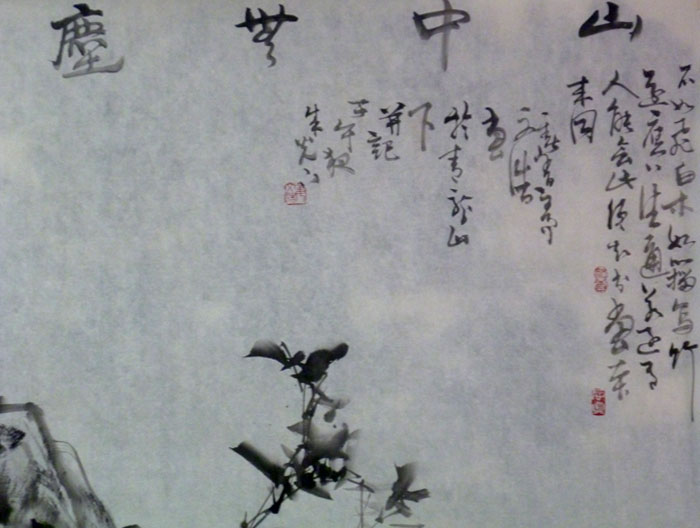 山中無塵
石如飛白木如籀寫竹
還應八法通若還有
人能會此須知書畫本
來同
畫
於青龍山
下
并記
壬午秋
朱